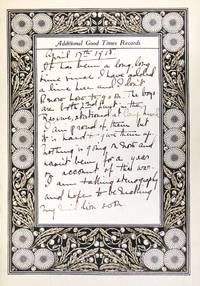 Additional Good Times Records
April 17th 1918
It has been a long, long
time since I have added
a line here and I don't
know how to go on. The boys
are both
Reserve, stationed at
I am proud of them but
it is hard to give them up.
nothing is going on now and
hasn't been for a year
on account of the war.
I am taking stenography
and hope to be making
my
soon